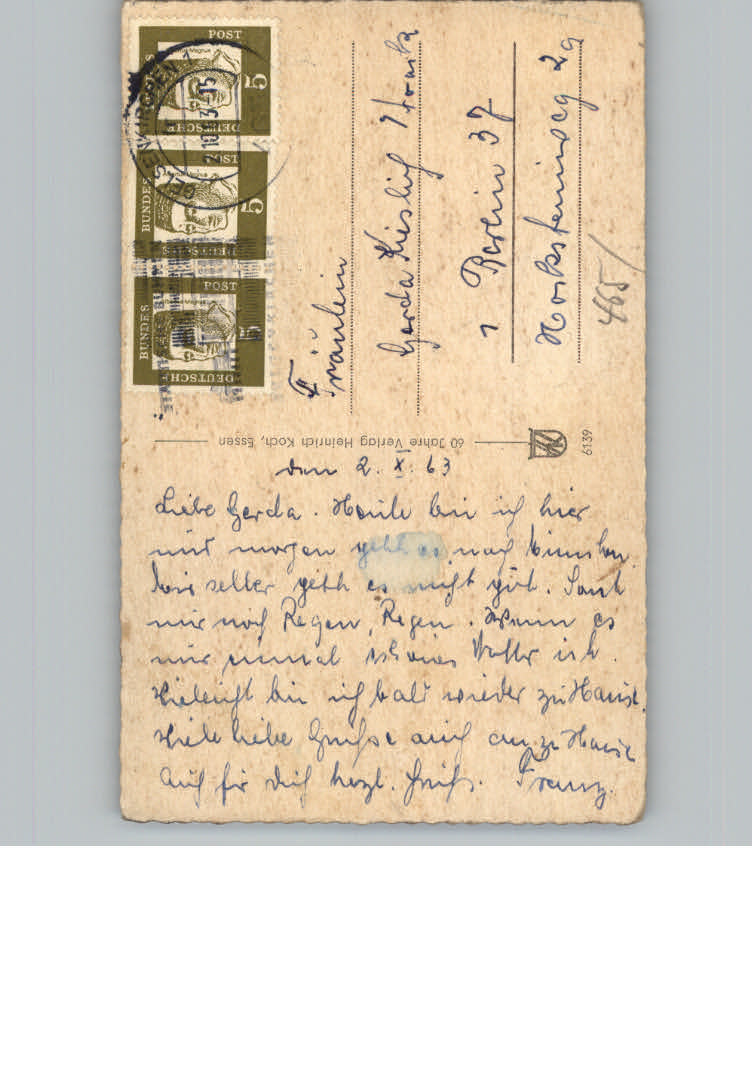 DEUTSCHE BUNDESPOST 5
DEUTSCHE BUNDESPOST 5
DEUTSCHE BUNDESPOST 5
GELSENKIRCHEN 1
Fräulein
Gerda
1 Berlin 37
2a
465/
60 Jahre Verlag Heinrich Koch, Essen
6139
den 2. X. 63
Liebe Gerda. Heute bin ich hier
und morgen geht es nach
geht es nicht gut. Sonst
nur noch Regen, Regen. Wenn es
nur einmal schönes Wetter ist.
Vieleicht bin ich bald wieder zu Hause.
Viele liebe Grüße auch an zu Hause
Auch für Dich herzl. Grüß. Franz.